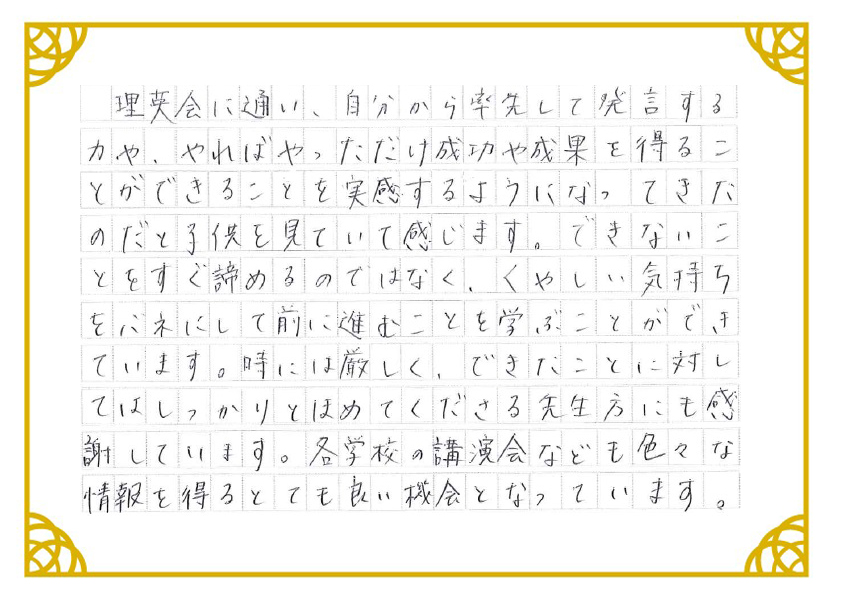 理英会に通い、自分から率先して発言する
力や、やればやっただけ成功や成果を得るこ
とができることを実感するようになってきた
のだと子供を見ていて感じます。できないこ
とをすぐ諦めるのではなく、くやしい気持ち
をバネにして前に進むことを学ぶことができ
ています。時には厳しく、できたことに対し
てはしっかりとほめてくださる先生方にも感
謝しています。各学校の講演会なども色々な
情報を得るとても良い機会となっています。